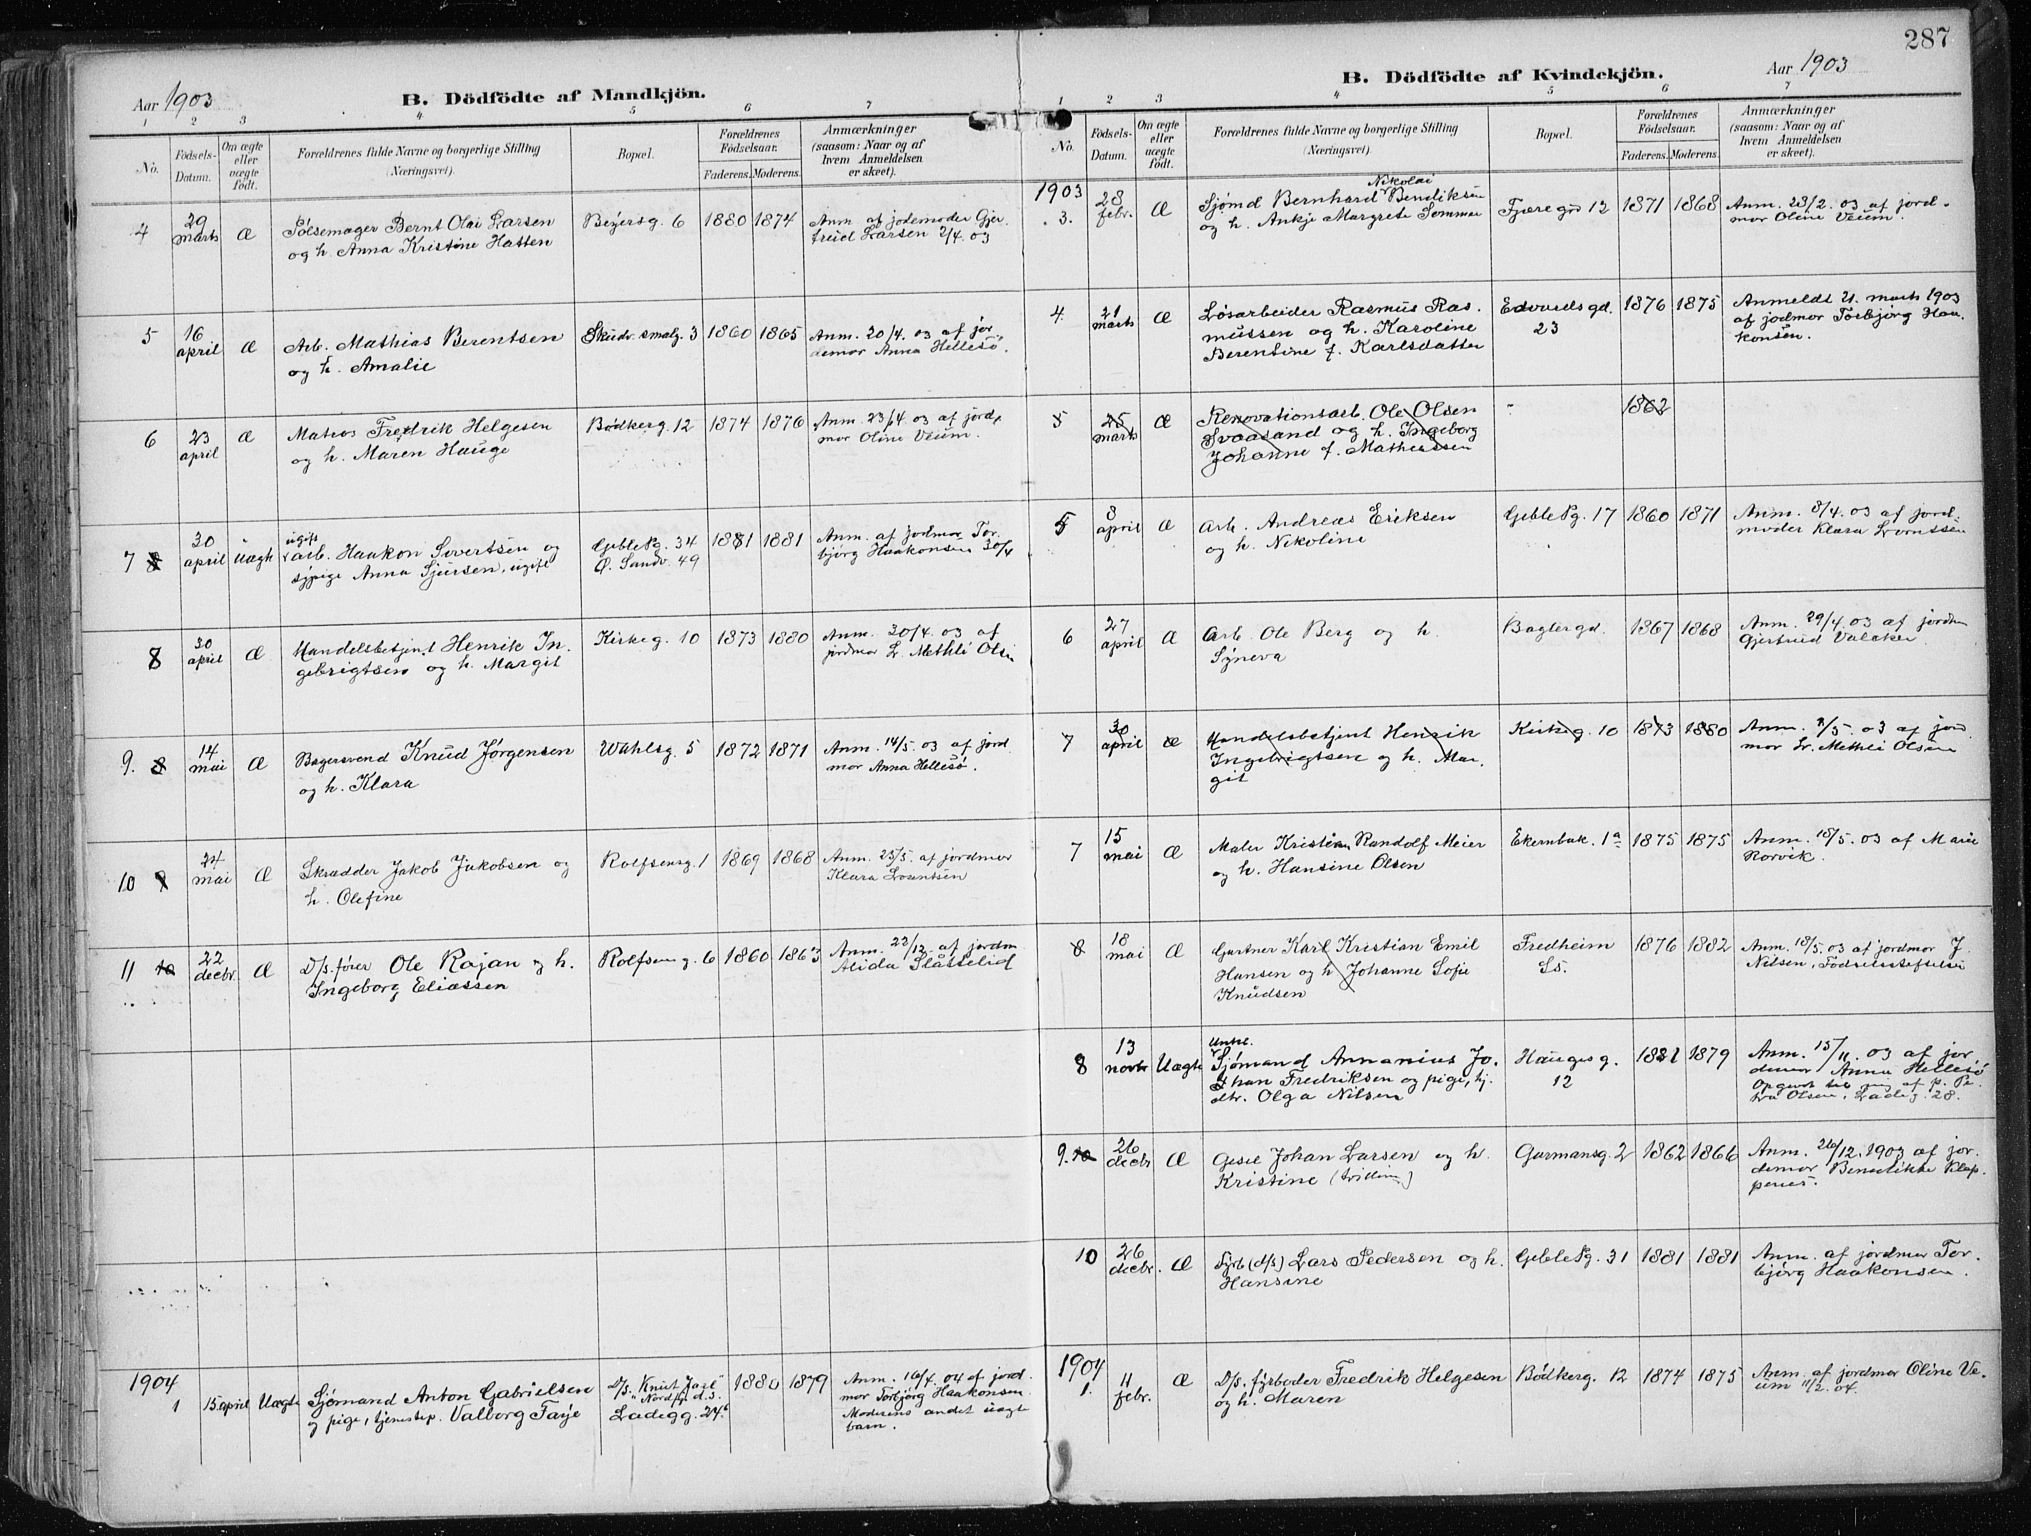 287
Aar 1903
B. Dödfödte af Mandkjön.
1 2 3 4 5 6 7
No.
Födsels-Datum.
Om ægte eller uægte födt.
Forældrenes fulde Navne og borgerlige Stilling
(Næringsvei).
Bopæl.
Forældrenes Födselsaar.
Faderens. Moderens.
Anmærkninger
(saasom: Naar og af
hvem Anmeldelsen
er skeet).
4 29 marts Æ Pölsemager Bernt Olai Larsen Beyersg. 6 1880 1874 Anm. af jodemoder Gjer
og h. Anna Kristine Hatten trud Larsen 2/4. 03
5 16 april Æ Arb. Mathias Berentsen Skudr. smalg. 3 1860 1865 Anm. 20/4. 03 af jor
og h. Amalie demor Anna Hellesö.
6 23 april Æ Matros Fredrik Helgesen Bødkerg. 12 1874 1876 Anm. 23/4 03 af jord
og h. Maren Hauge mor Oline Veum.
7 8 30 april Uægte ugift
arb. Haakon Sivertsen og Geble Pg. 34 1881 1881 Anm. af jordmor Tor
sypige Anna Sjursen, ugift Ø. Sandv. 49 bjørg Haakonsen 30/4
8 30 april Æ Handelsbetjent Henrik In Kirkeg. 10 1873 1880 Anm. 30/4. 03 af
gebrigtsen og h. Margit jordmor L. Methli Olsen
9. 8 14 mai Æ Bagersvend Knud Jørgensen Wahlsg. 5 1872 1871 Anm. 14/5. 03 af jord
og h. Klara mor Anna Hellesö.
10 9 24 mai Æ Skrædder Jakob Jakobsen og Rolfsensg. 1 1869 1868 Anm. 25/5. af jordmor
h. Olefine Klara Lorntsen
11 10 22 decbr. Æ D/s. fører Ole Rajan og h. Rolfsensg. 6 1860 1863 Anm. 22/12. af jordm
Ingeborg Eliassen Alida Slåttelid
1904
1 15 april Uægte Sjømand Anton Gabrielsen D/s. "Knut Jarl" 1880 1879 Anm. 16/4. 04 af jord
og pige, tjenestep. Valborg Faye Nordfj. d. s. mor Torbjørg Haakonsen
Ladegg. 24b Moderens andet uægte
barn.
B. Dödfödte af Kvindekjön.
Aar 1903
1 2 3 4 5 6 7
No.
Födsels-Datum.
Om ægte eller uægte födt.
Forældrenes fulde Navne og borgerlige Stilling
(Næringsvei).
Bopæl.
Forældrenes Födselsaar.
Faderens. Moderens.
Anmærkninger
(saasom: Naar og af
hvem Anmeldelsen
er skeet).
1903
3. 28 febr. Æ Nikolai
Sjømd Bernhard Bendiksen Fjæregrd 12 1871 1868 Anm. 28/2. 03 af jord
og h. Ankje Margrete Sommer mor Oline Veum.
4 21 marts Æ Løsarbeider Rasmus Ras Edvardsgd. 1876 1875 Anmeldt 21. marts 1903
mussen og h. Karoline 23 af jodmor Torbjørg Haa
Berentine f. Karlsdatter konsen.
5 25 marts Æ Renovationsarb. Ole Olsen 1862
Svaasand og h. Ingeborg
Johanne f. Mathiassen
5 8 april Æ Arb. Andreas Eriksen Geble Pg. 17 1860 1871 Anm. 8/4. 03 af jord
og h. Nikoline moder Klara Lorntsen
6 27 april Æ Arb. Ole Berg og h. Baglergd. 1867 1868 Anm. 29/4. 03 af jordm
Syneva Gjertrud Valaker
7 30 april Æ Handelsbetjent Henrik Kirkeg. 10 1873 1880 Anm. 1/5. 03 af jord
Ingebrigtsen og h. Mar mor L. Methli Olsen
git
7 15 mai Æ Maler Kristian Randolf Meier Ekernbak. 1a 1875 1875 Anm. 18/5. 03 af Marie
og h. Hansine Olsen Rorvik.
8 18 mai Æ Gartner Karl Kristian Emil Fredheim 1876 1882 Anm. 18/5. 03 af jordmor J.
Hansen og h. Johanne Sofie Ls. Nilsen, Fødselsstiftelsen
Knudsen
8 13 novbr Uægte Unkl.
Sjømand Annanius Jo Haugesg. 1881 1879 Anm. 15/11. 03 af jor
han Fredriksen og pige, hj. 12 demor Anna Hellesö
dtr. Olga Nilsen Opgivet til mig af p. Pe
tra Olsen, Ladeg. 28.
9. 10 26 decbr Æ Gesel Johan Larsen og h. Garmansg. 2 1862 1866 Anm. 26/12. 1903 af jor
Kristine demor Benedikte Klep
penes.
10 26 decbr. Æ Fyrb (d/s) Lars Pedersen og h. Geble Pg. 31 1881 1881 Anm. af jordmor Tor
Hansine bjørg Haakonsen.
1904
1. 11 febr. Æ D/s. fyrbøder Fredrik Helgesen Bödkerg. 12 1874 1875 Anm. af jordmor Oline Ve
og h. Maren um 11/2. 04.